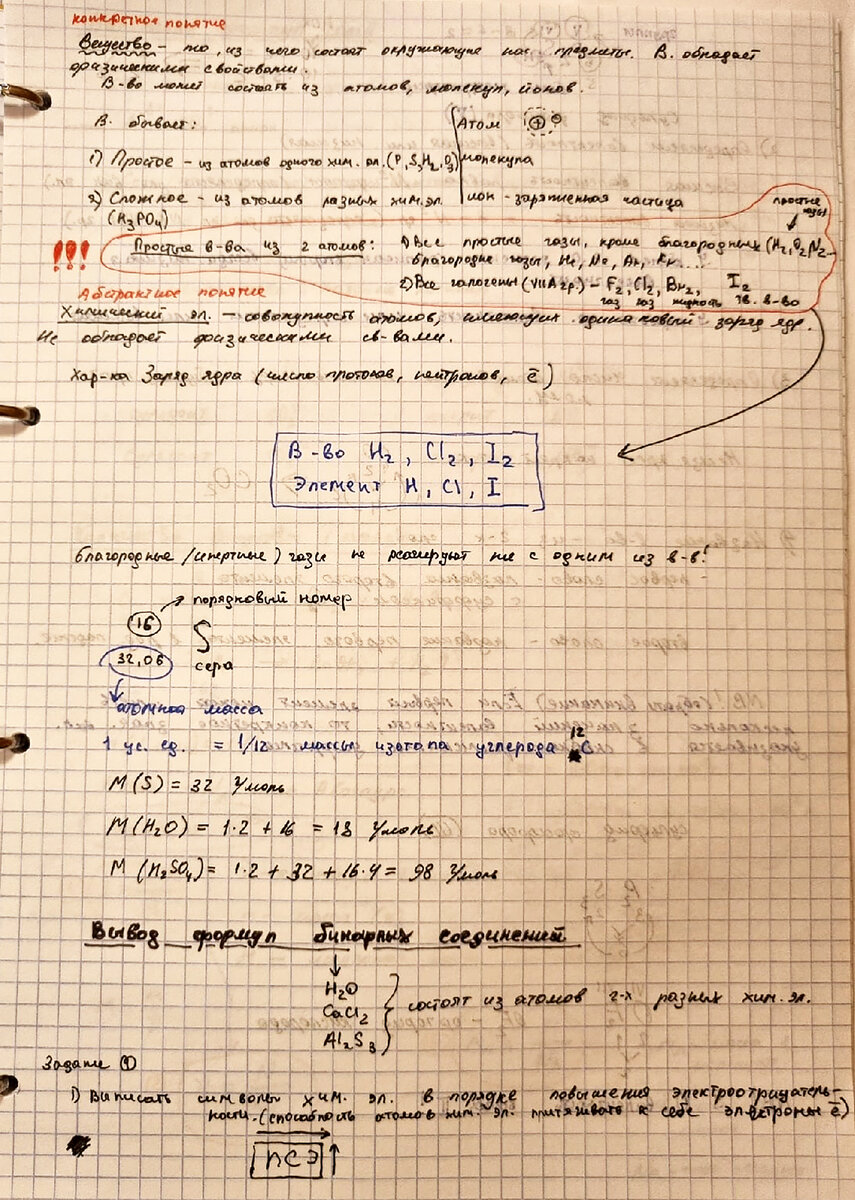 конкретное понятие
Вещество - то, из чего состоят окружающие нас предметы. В. обладает
физическими свойствами.
В-во может состоять из атомов, молекул, ионов.
В. бывает:
Атом
1) Простое - из атомов одного хим. эл. (P, S, H₂, O₃)
молекула
2) Сложное - из атомов разных хим. эл.
(H₃PO₄)
ион - заряженная частица
простые газы
!!! Простые в-ва из 2 атомов: 1) Все простые газы, кроме благородных (H₂, O₂, N₂
благородные газы, He, Ne, Ar, Kr ....
2) Все галогены (VIIA гр.) - F₂, Cl₂, Br₂, I₂
газ газ жидкость тв. в-во
Абстрактное понятие
Химический эл. - совокупность атомов, имеющих одинаковый заряд ядр.
Не обладает физическими св-вами.
Хар-ка Заряд ядра (число протонов, нейтронов, ē)
В-во H₂, Cl₂, I₂
Элемент H, Cl, I
благородные /инертные) газы не реагируют ни с одним из в-в!
порядковый номер
16 S
32,06 сера
атомная масса
1 ус. ед. = 1/12 массы изотопа углерода ¹²C
M(S) = 32 г/моль
M(H₂O) = 1·2 + 16 = 18 г/моль
M(H₂SO₄) = 1·2 + 32 + 16·4 = 98 г/моль
Вывод формул бинарных соединений
H₂O
CaCl₂
Al₂S₃
состоят из атомов 2-х разных хим. эл.
Задание ①
1) Выписать символы хим. эл. в порядке повышения электроотрицатель-
ности. (способность атомов хим. эл. притягивать к себе электроны ē)
ПСЭ